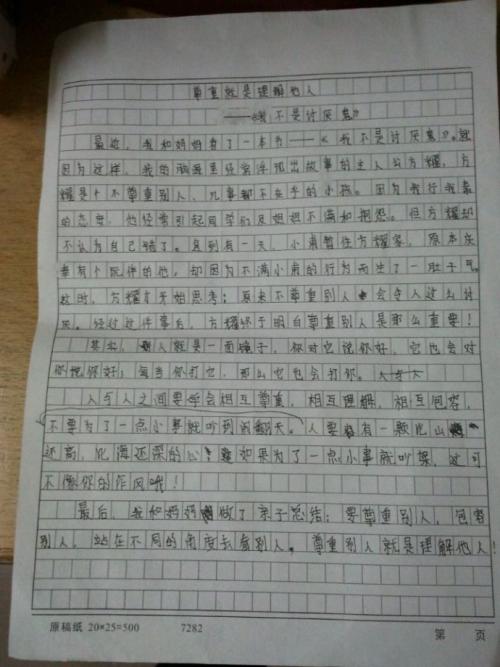 尊重就是理解他人
——《我不是讨厌鬼》
最近，我和妈妈看了一本书——《我不是讨厌鬼》。就
因为这样，我的脑海里经常浮现出故事的主人公方耀，方
耀是个不尊重别人、凡事都不在乎的小孩。因为我行我素
的态度，他经常引起同学们及妈妈不满和抱怨。但方耀却
不认为自己错了。直到有一天，小虎暂住方耀家，原本庆
幸有个玩伴的他，却因为不满小虎的行为而生了一肚子气。
这时，方耀才开始思考：原来不尊重别人会令人这么讨
厌。经过这件事后，方耀终于明白尊重别人是那么重要！
其实，别人就是一面镜子，你对它说你好，它也会对
你说你好；每当你打它，那么它也会打你。
人与人之间要学会相互尊重，相互理解，相互包容，
不要为了一点小事就吵到闹翻天。人要有一颗比山
还高，比海还深的心！如果为了一点小事就吵架，这可
不像你的作风哦！
最后，我和妈妈做了亲子总结：要尊重别人，包容
别人，站在不同的角度去看别人。尊重别人就是理解他人！
原稿纸 20×25=500 7282 第 页